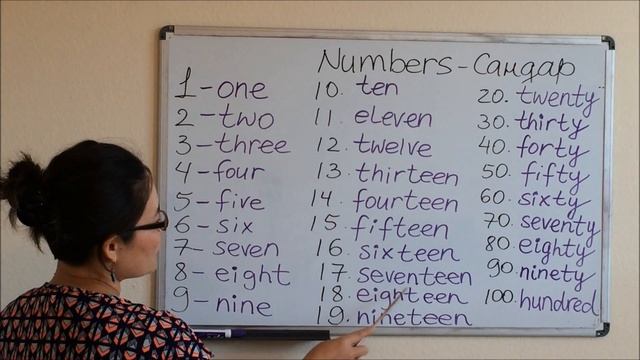 Numbers - Сандар
1 - one
2 - two
3 - three
4 - four
5 - five
6 - six
7 - seven
8 - eight
9 - nine
10. ten
11. eleven
12. twelve
13. thirteen
14. fourteen
15. fifteen
16. sixteen
17. seventeen
18. eighteen
19. nineteen
20. twenty
30. thirty
40. forty
50. fifty
60. sixty
70. seventy
80. eighty
90. ninety
100. hundred